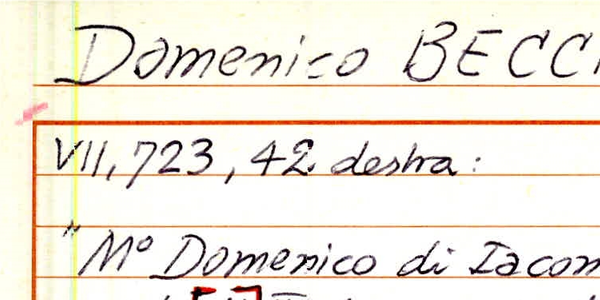 Domenico BECC
VII, 723, 42 destra:
"Mº Domenico di Iacom